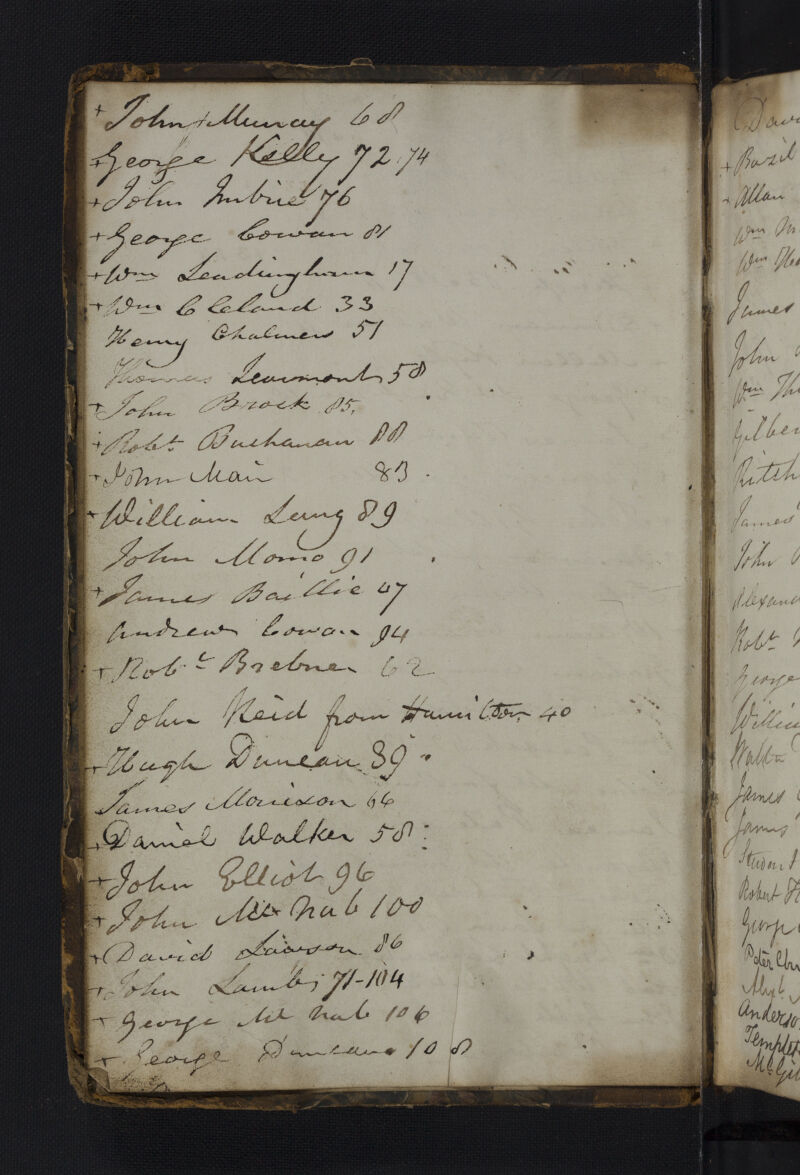 + John Murray 68
+ George Kelly 72, 74
+ John Imbrie 76
+ George Cowan 81
+ Wm Leadingham 17
+ Wm Cleland 33
Henry Chalmers 51
Thomas Learmont 58
+ John Brock 85.
+ Robt Buchanan 88
+ John Mair 83
+ William Lang 89
John 91
+ James Baillie 47
Andrew Cowan 94
+ Robt Brebner 62
John Reid from Hamilton 40
+ Hugh Duncan 39
James Morrison 66
+ Daniel Walker 58
+ John Elliot 96
+ John Mc Nab 100
+ David Lawson 86
+ John Lamb 71-104
+ George Mc Nab 106
+ George 108
+ Bazil
+ Allan
Wm
Wm
James
John
Wm
James
John
Robt
George
James
James
Robert
George
Peter